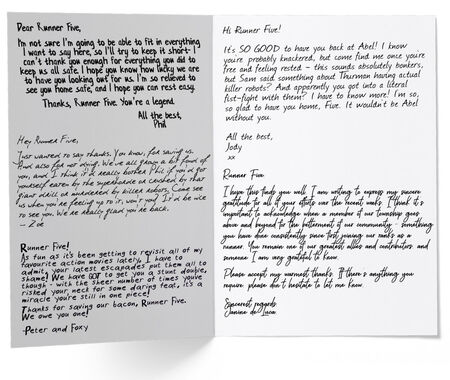 Dear Runner Five,
I'm not sure I'm going to be able to fit in everything
I want to say here, so I'll try to keep it short - I
can't thank you enough for everything you did to
keep us all safe. I hope you know how lucky we are
to have you looking out for us. I'm so relieved to
see you home safe, and I hope you can rest easy.
Thanks, Runner Five. You're a legend
All the best,
Phil
Hey Runner Five,
Just wanted to say thanks. You know, for saving us.
And also for not dying. We've all grown a bit fond of
you, and I think it'd really bother Phil if you'd got
yourself eaten by the superhorde or crushed by that
giant drill or murdered by killer robots. Come see
us when you're feeling up to it, won't you? It'd be nice
to see you. We're really glad you're back.
- Zoe
Runner Five!
As fun as it's been getting to revisit all of my
favourite action movies lately, I have to
admit, your latest escapades put them all to
shame! We have GOT to get you a stunt double,
though - with the sheer number of times you've
risked your neck for some daring feat, it's a
miracle you're still in one piece!
Thanks for saving our bacon, Runner Five.
We owe you one!
-Peter and Foxy
Hi Runner Five!
It's SO GOOD to have you back at Abel! I know
you're probably knackered, but come find me once you're
free and feeling rested - this sounds absolutely bonkers,
but Sam said something about Thurman having actual
killer robots? And apparently you got into a literal
fist-fight with them? I have to know more! I'm so,
so glad to have you home, Five. It wouldn't be Abel
without you.
All the best,
Jody
xx
Runner Five
I hope this finds you well. I am writing to express my sincere
gratitude for all of your efforts over the recent weeks. I think it's
important to acknowledge when a member of our township goes
above and beyond for the betterment of our community - something
you have done consistently since first joining our ranks as a
runner. You remain one of our greatest allies and contributors, and
someone I am very grateful to know.
Please accept my warmest thanks. If there's anything you
require, please don't hesitate to let me know.
Sincerest regards,
Janine de Luca